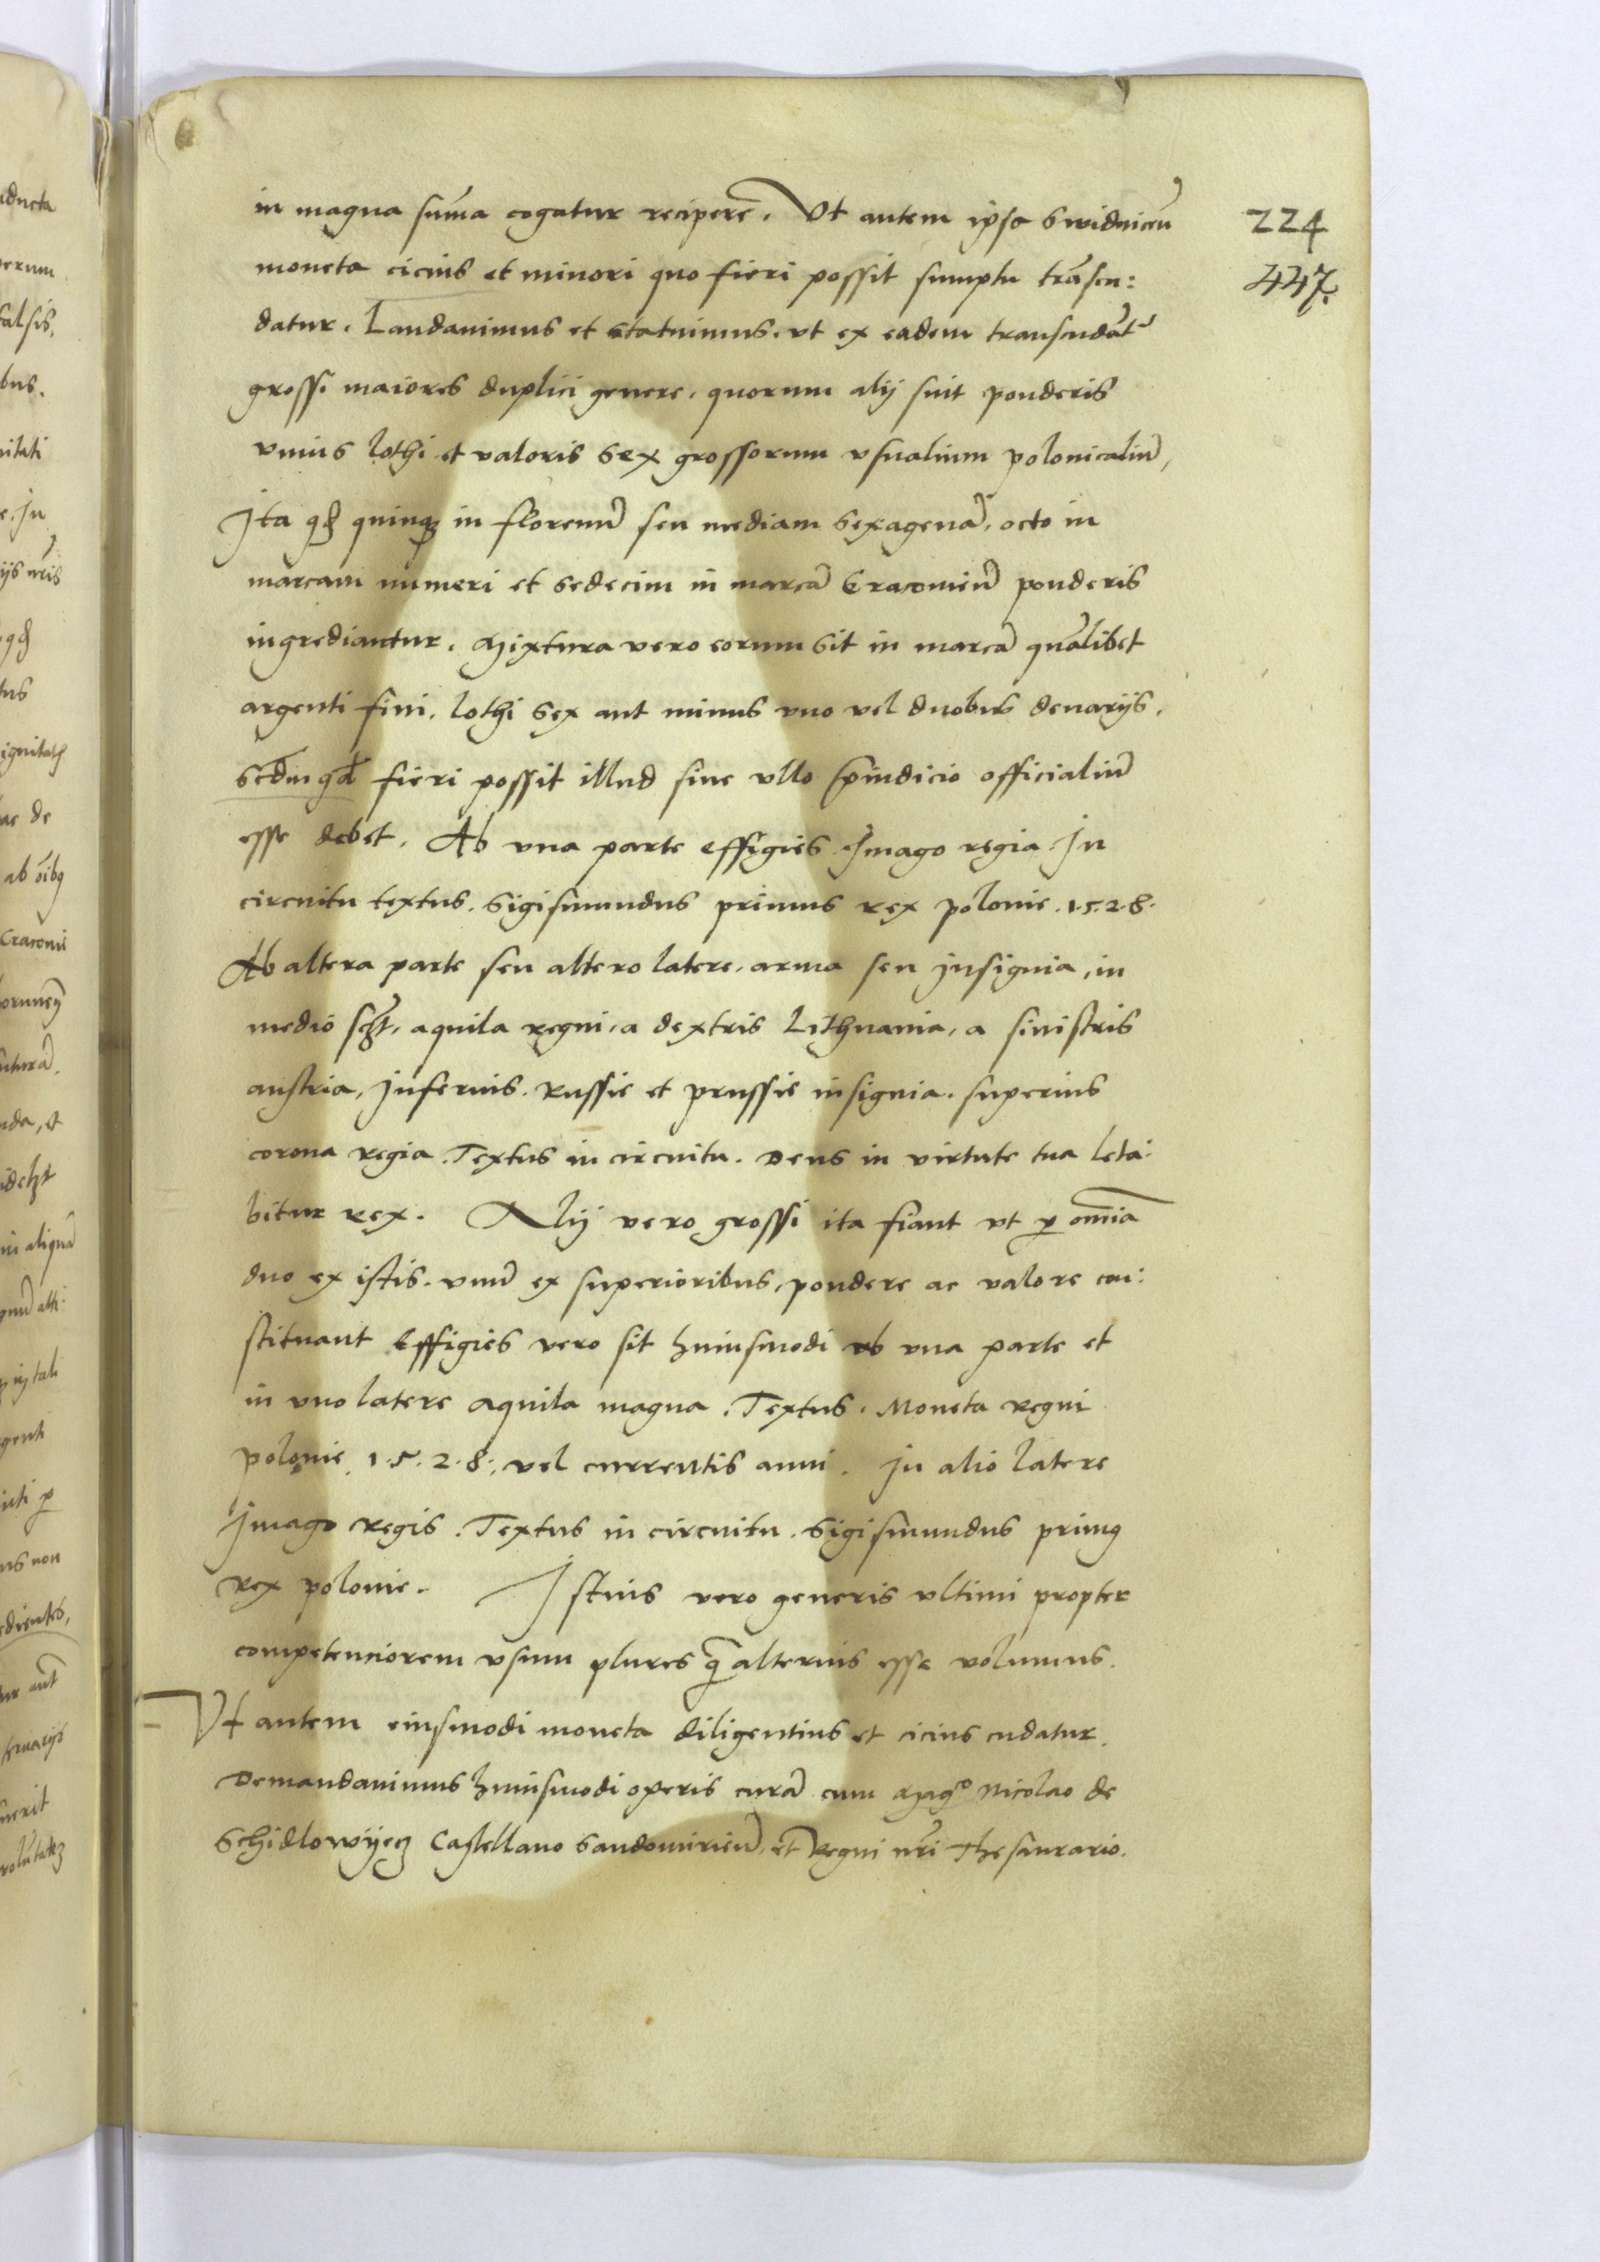 in magna suma cogatur recipere. Ut autem ipsa Swidnicen̄ 224
moneta cicius et minori quo fieri possit sumptu trāscu: 447.
datur. Laudavimus et statuimus. ut ex eadem transcudāt
grossi maiores duplici genere, quorum alij sint ponderis
unius lothi et valoris sex grossorum usualium polonicaliū,
Ita qd quinq in florenū seu mediam sexagenā, octo in
marcam numeri et sedecim in marcā Cracovien̄ ponderis
ingrediantur. Mixtura vero eorum sit in marcā quālibet
argenti fini, lothi sex aut minus uno vel duobus denarijs,
fieri possit illud sine ullo piudicio officialiū
esse debet. Ab una parte effigies Imago regia. In
circuitu textus. Sigismundus primus rex polonie .1.5.2.8.
Ab altera parte seu altero latere, arma seu insignia, in
medio aquila regni, a dextris Lithuania, a sinistris
austria, inferius. Russie et prussie insignia. superius
corona regia. Textus in circuitu. Deus in virtute tua leta:
bitur rex. Alij vero grossi ita fiant ut p omnia
duo ex istis. unū ex superioribus, pondere ac valore con:
stituant Effigies vero sit huiusmodi ab una parte et
in uno latere aquila magna. Textus. Moneta regni
polonie 1.5.2.8., vel currentis anni. In alio latere
Imago regis. Textus in circuitu. Sigismundus primq
rex polonie. Istius vero generis ultimi propter
competenciorem usum plures q̄ alterius esse volumus.
Ut autem eiusmodi moneta diligentius et cicius cudatur.
Demandavimus huiusmodi operis curā cum Magco Nicolao de
Schidlowyecz Castellano Sandomirien̄, et Regni nri Thesaurario.